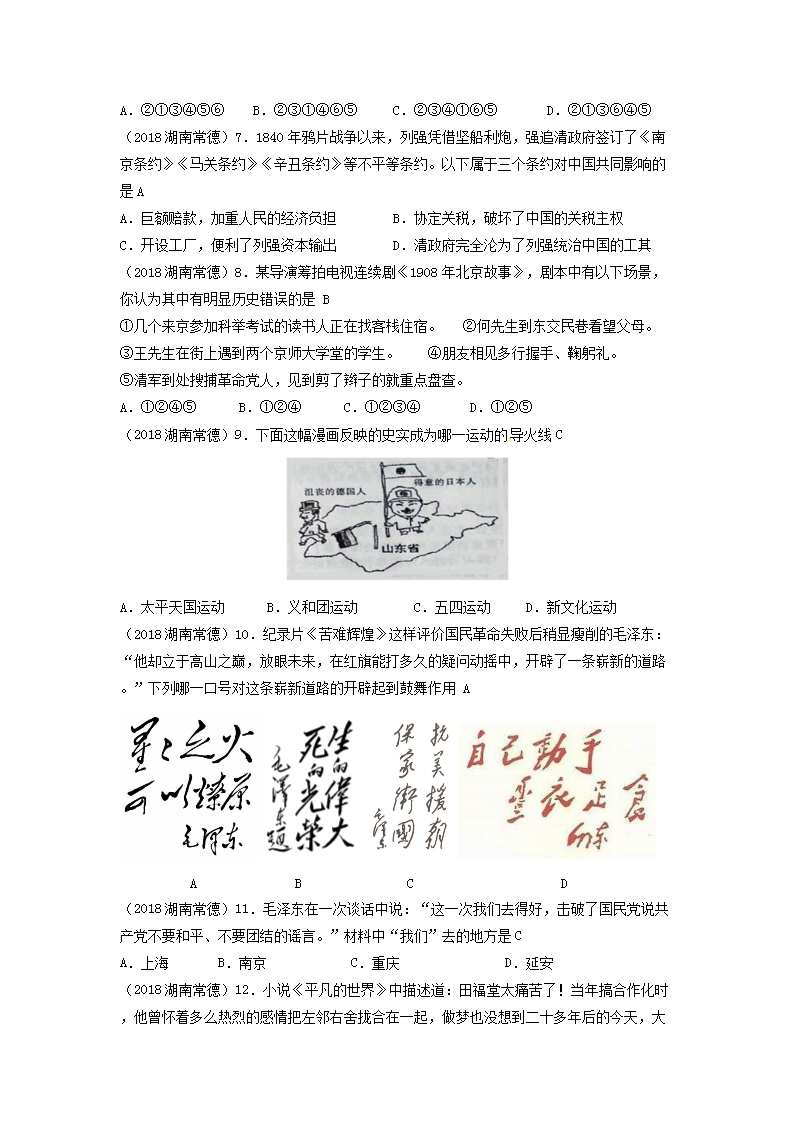 A．②①③④⑤⑥ B．②③①④⑥⑤ C．②③④①⑥⑤ D．②①③⑥④⑤
（2018湖南常德）7．1840年鸦片战争以来，列强凭借坚船利炮，强迫清政府签订了《南
京条约》《马关条约》《辛丑条约》等不平等条约。以下属于三个条约对中国共同影响的
是A
A．巨额赔款，加重人民的经济负担 B．协定关税，破坏了中国的关税主权
C．开设工厂，便利了列强资本输出 D．清政府完全沦为了列强统治中国的工其
（2018湖南常德）8．某导演筹拍电视连续剧《1908年北京故事》，剧本中有以下场景，
你认为其中有明显历史错误的是 B
①几个来京参加科举考试的读书人正在找客栈住宿。 ②何先生到东交民巷看望父母。
③王先生在街上遇到两个京师大学堂的学生。 ④朋友相见多行握手、鞠躬礼。
⑤清军到处搜捕革命党人，见到剪了辫子的就重点盘查。
A．①②④⑤ B．①②④ C．①②③④ D．①②⑤
（2018湖南常德）9．下面这幅漫画反映的史实成为哪一运动的导火线C
沮丧的德国人 得意的日本人
山东省
A．太平天国运动 B．义和团运动 C．五四运动 D．新文化运动
（2018湖南常德）10．纪录片《苦难辉煌》这样评价国民革命失败后稍显瘦削的毛泽东：
“他却立于高山之巅，放眼未来，在红旗能打多久的疑问动摇中，开辟了一条崭新的道路
。”下列哪一口号对这条崭新道路的开辟起到鼓舞作用 A
星星之火
可以燎原
毛泽东
生的偉大
死的光榮
毛澤東題
抗美援朝
保家衛國
毛泽东
自己動手
豐衣足食
毛泽东
A B C D
（2018湖南常德）11．毛泽东在一次谈话中说：“这一次我们去得好，击破了国民党说共
产党不要和平、不要团结的谣言。”材料中“我们”去的地方是C
A．上海 B．南京 C．重庆 D．延安
（2018湖南常德）12．小说《平凡的世界》中描述道：田福堂太痛苦了！当年搞合作化时
，他曾怀着多么热烈的感情把左邻右舍拢合在一起，做梦也没想到二十多年后的今天，大